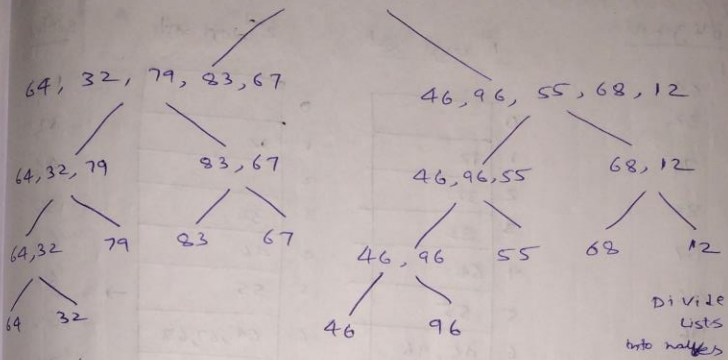 64, 32, 79, 83, 67 46, 96, 55, 68, 12
64, 32, 79 83, 67 46, 96, 55 68, 12
64, 32 79 83 67 46, 96 55 68 12
64 32 46 96
Divide
Lists
into halfes